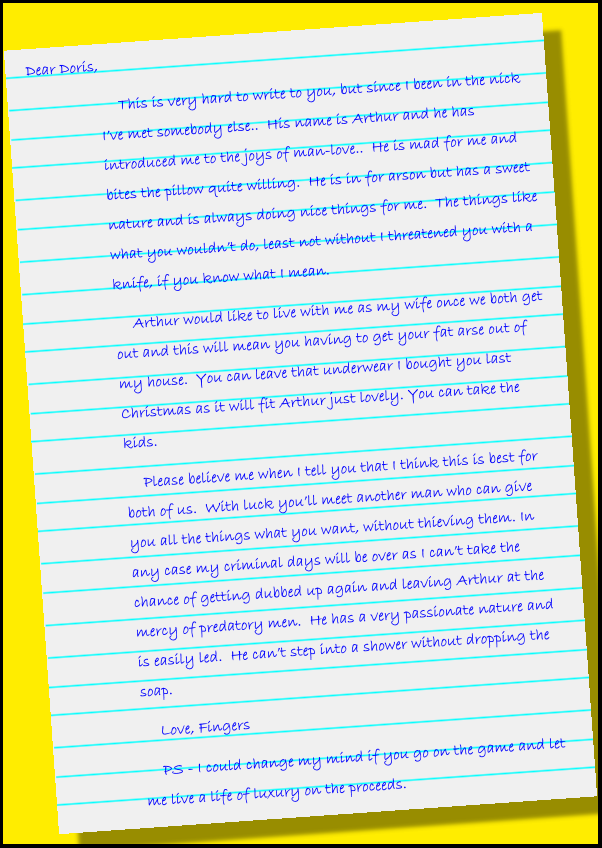 Dear Doris,
This is very hard to write to you, but since I been in the nick
I've met somebody else.. His name is Arthur and he has
introduced me to the joys of man-love.. He is mad for me and
bites the pillow quite willing. He is in for arson but has a sweet
nature and is always doing nice things for me. The things like
what you wouldn't do, least not without I threatened you with a
knife, if you know what I mean.
Arthur would like to live with me as my wife once we both get
out and this will mean you having to get your fat arse out of
my house. You can leave that underwear I bought you last
Christmas as it will fit Arthur just lovely. You can take the
kids.
Please believe me when I tell you that I think this is best for
both of us. With luck you'll meet another man who can give
you all the things what you want, without thieving them. In
any case my criminal days will be over as I can't take the
chance of getting dubbed up again and leaving Arthur at the
mercy of predatory men. He has a very passionate nature and
is easily led. He can't step into a shower without dropping the
soap.
Love, Fingers
PS - I could change my mind if you go on the game and let
me live a life of luxury on the proceeds.